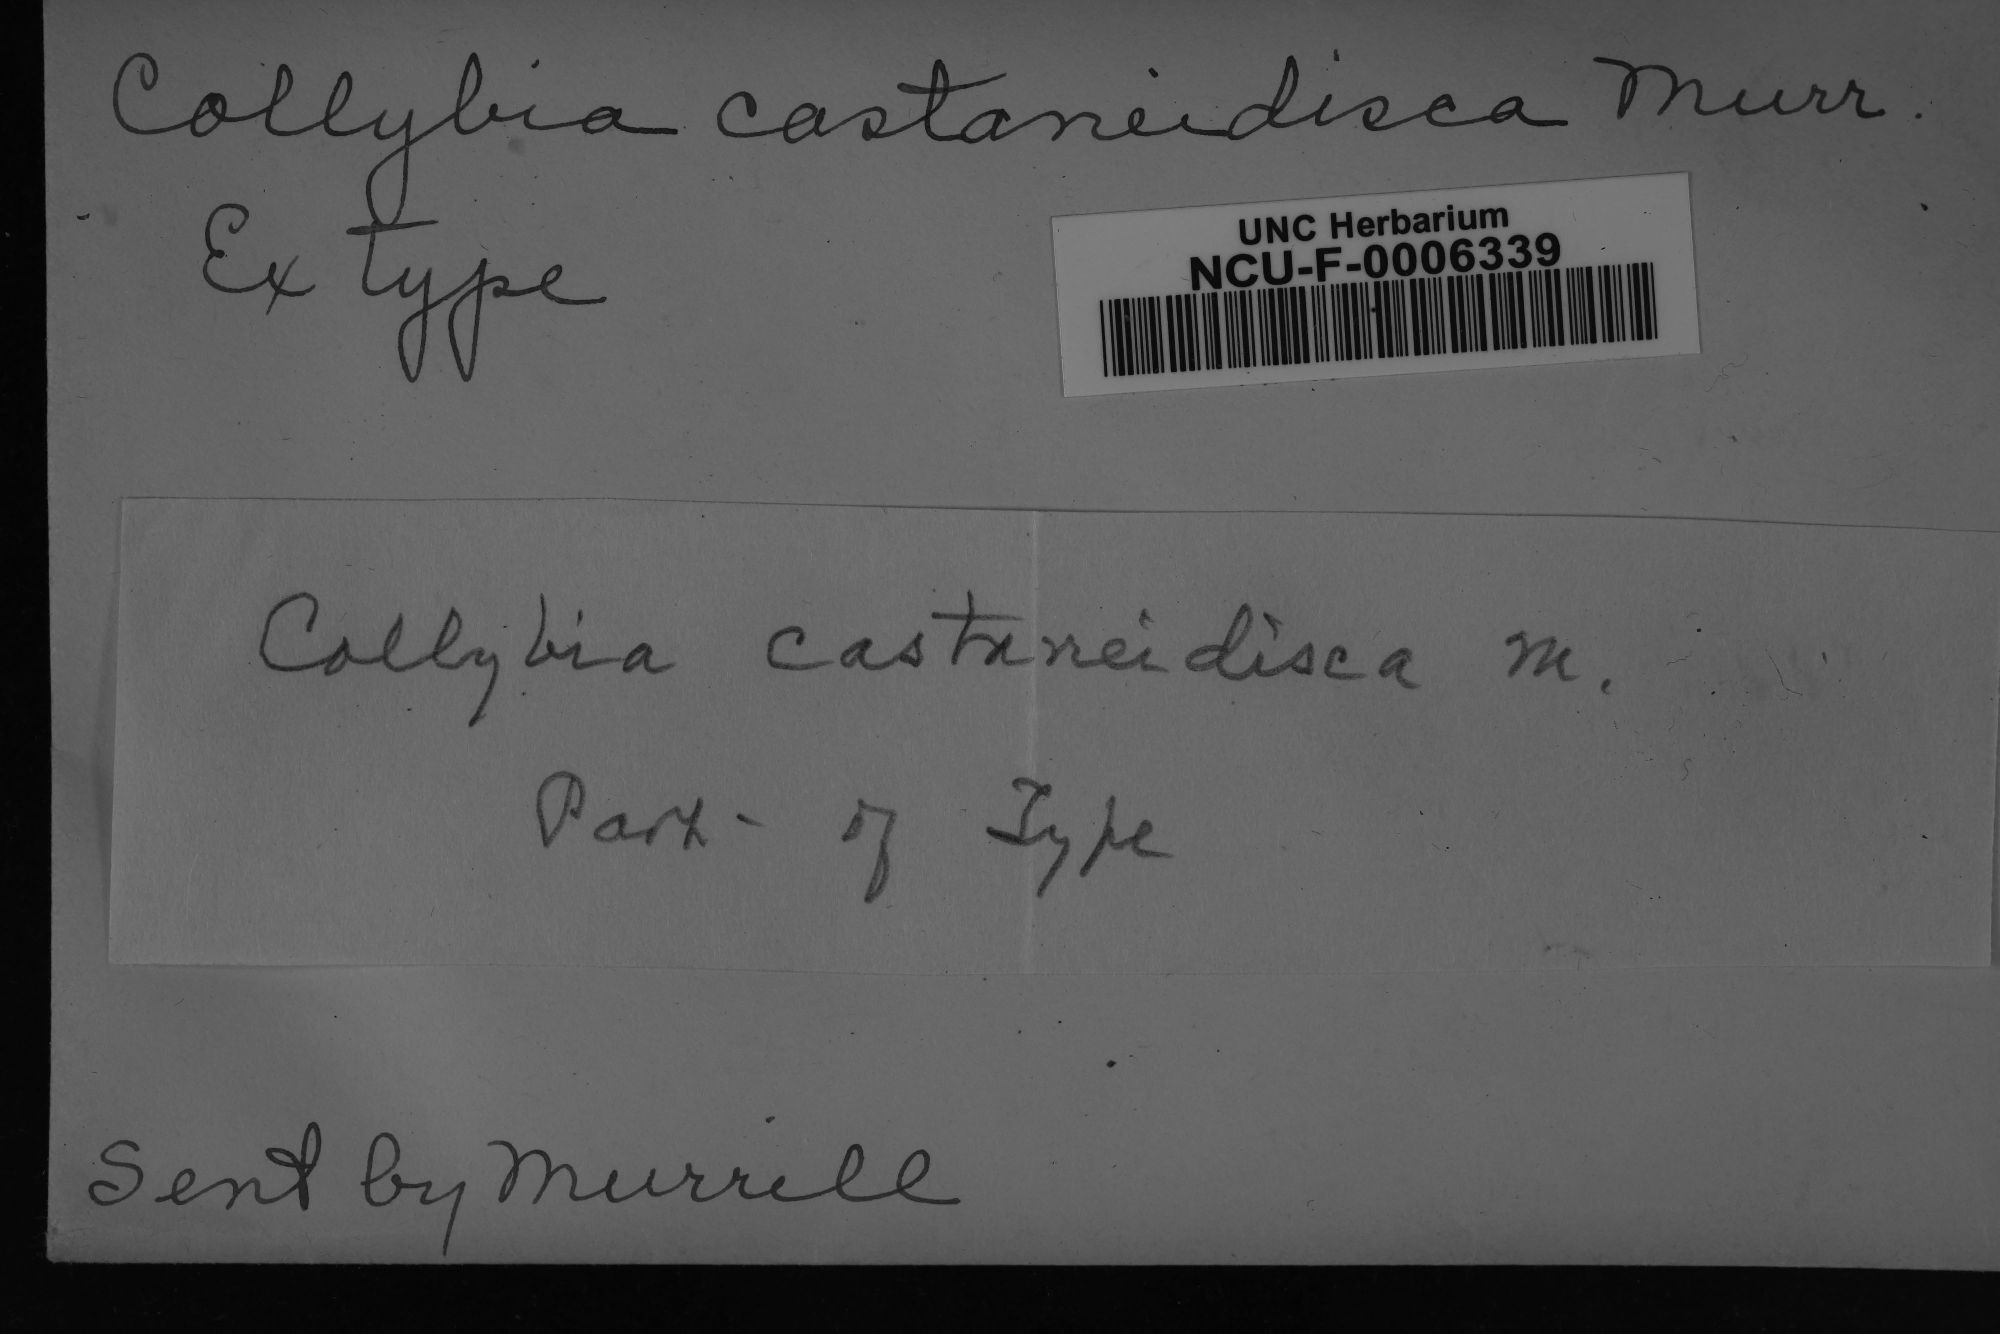 Collybia castaneidisca Murr.
Ex type
UNC Herbarium
NCU-F-0006339
Collybia castaneidisca M.
Part - of Type
Sent by Murrill